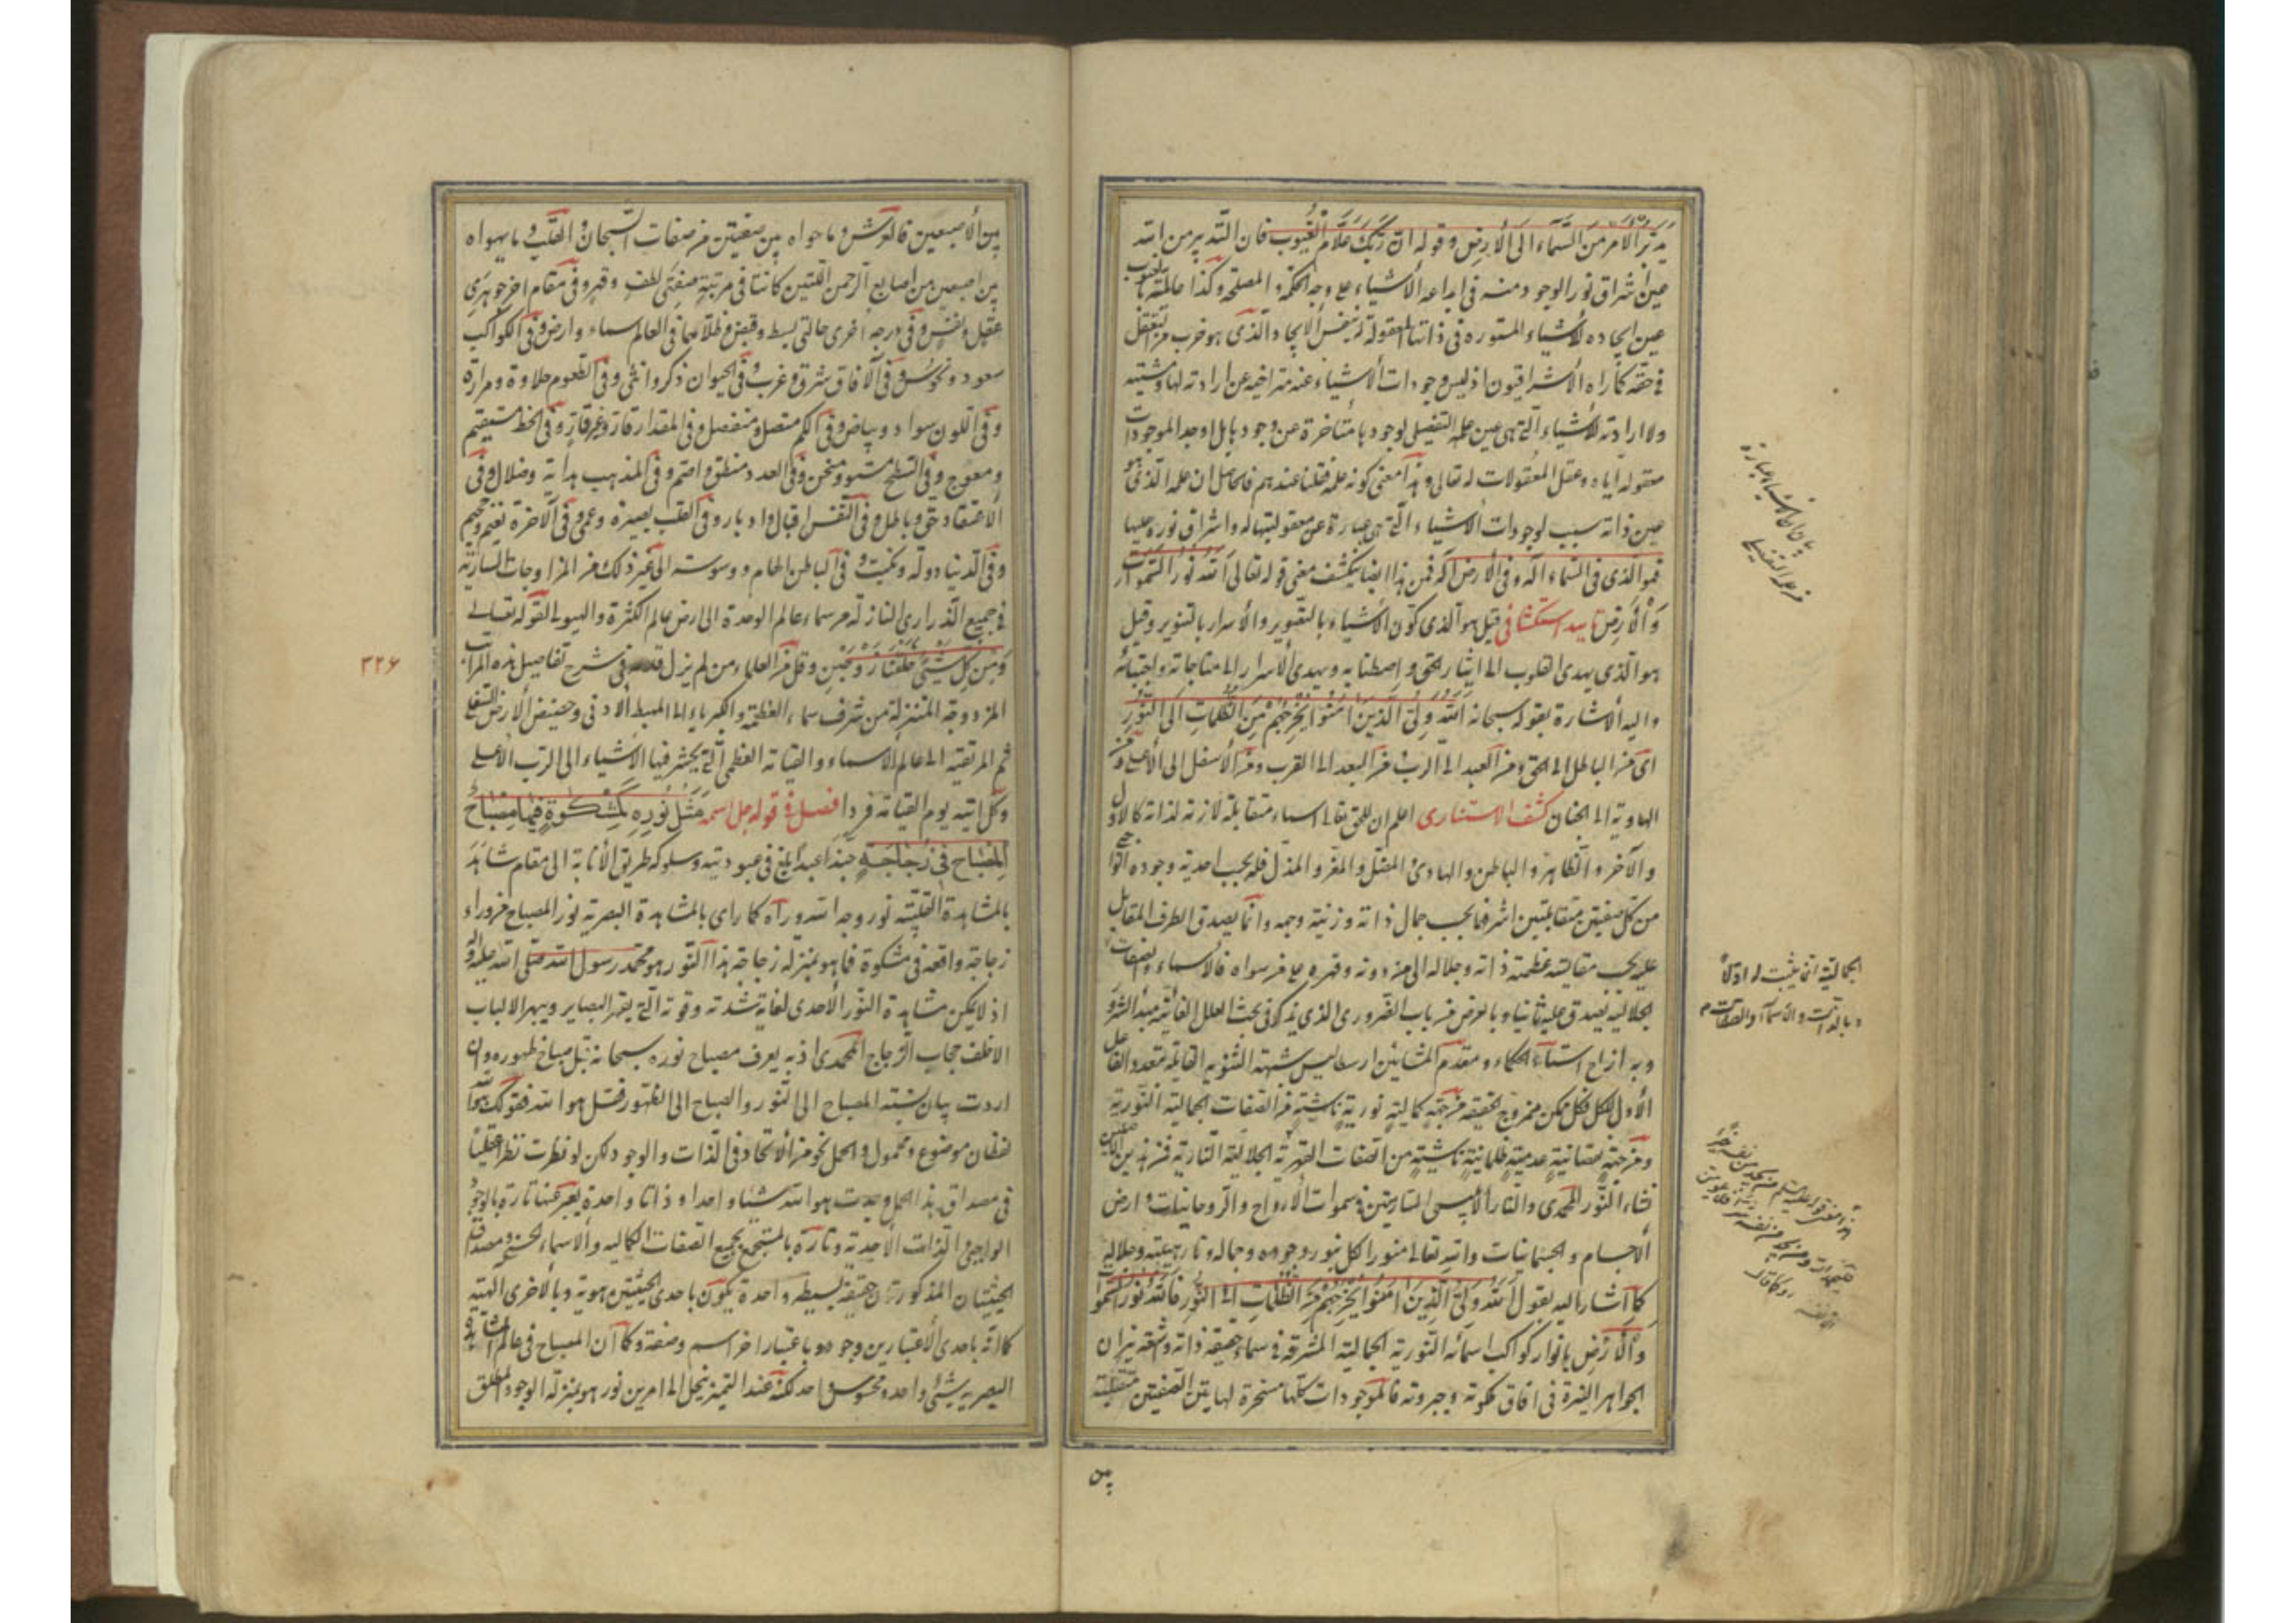 يدبر الأمر من السماء الى الأرض وقوله ان ربك علام الغيوب فان التدبير من الله
عين اشراق نور الوجود منه فى ابداعه الأشياء على وجه الحكمة والمصلحة وكذا عالميته بالغيوب
عين ايجاده للأشياء المستورة فى ذاتها المعقولة له بنفس الايجاد الذى هو ضرب من التعقل
فى حقه كما رآه الأشراقيون اذ ليس وجودات الأشياء عنه متراخية عن ارادته لها ومشيته
ولا ارادته للأشياء التى هى عين علمه التفصيلى لوجودها متأخرة عن وجودها بل اوجد الموجودات
معقولة اياه وعقل المعقولات له تعالى وهذا معنى كونه علمه فعليا عندهم فالحاصل ان علمه الذى هو
عين ذاته سبب لوجودات الأشياء التى هى عبارة عن معقوليتها له واشراق نوره عليها
فهو الذى فى السماء اله وفى الأرض اله فمن هذا ايضا ينكشف معنى قوله تعالى الله نور السموات
والأرض تاييد استكشافى قيل هو الذى كون الأشياء بالتصوير والأسرار بالتنوير وقيل
هو الذى يهدى القلوب الى ايثار الحق واصطفايه ويهدى الأسرار الى مناجاته واجتبائه
واليه الأشارة بقوله سبحانه الله ولى الذين امنوا يخرجهم من الظلمات الى النور
اى من الباطل الى الحق ومن العبد الى الرب ومن البعد الى القرب ومن الأسفل الى الأعلى ومن
الهاوية الى الجنان كشف الاستنارى اعلم ان للحق تعالى اسماء متقابلة لازمة لذاته كالأول
والآخر والظاهر والباطن والهادى والمضل والمعز والمذل فله بحسب احدية وجوده الواجبى
من كل صفتين متقابلتين اشرفهما بحسب جمال ذاته وزينة وجهه وانما يصدق الطرف المقابل
عليه بحسب مقايسته عظمة ذاته وجلاله الى من دونه وقهره على من سواه فالأسماء والصفات
الجلالية يصدق عليه ثانيا وبالعرض من باب الضرورى الذى يذكر فى بحث العلل الغائية مبدأ الشرور
وبه ازاح استاد الحكماء ومقدم المشائين ارسطاليس شبهة الثنوية القايلة بتعدد الفاعل
الأول للكل فكل ممكن مزدوج الحقيقة من جهة كمالية نورية ناشية من الصفات الجمالية النورية
ومن جهة نقصانية عدمية ظلمانية ناشية من الصفات القهرية الجلالية النارية فمن هذين الأصلين
نشاء النور المحمدى والنار الأبليسى الساريتين فى سموات الأرواح والروحانيات وارض
الأجسام والجسمانيات وانه تعالى منور الكل بنور وجوده وجماله ونار هيبته وجلاله
كما اشار اليه بقوله الله ولى الذين امنوا يخرجهم من الظلمات الى النور فالله نور السموات
والأرض بانوار كواكب اسمائه النورية الجمالية المشرقة فى سماء حقيقة ذاته وأشعة نيران
الجواهر النيرة فى افاق ملكوته وجبروته فالموجودات كلها مسخرة لهاتين الصفتين متقلبة
بين
الجمالية انما يثبت له اولاً
وبالذات والأسماء والصفات م
بين الأصبعين فالعرش وما حواه بين صفتين من صفات السبحان والقلب وما يهواه
بين اصبعين من اصابع الرحمن اللتين كانتا فى مرتبة صفتى لطف وقهر وفى مقام اخر جوهرى
عقل ونفس وفى درجه اخرى حالتى بسط وقبض وظلامهما فى العالم سماء وارض وفى الكواكب
سعود ونحوس وفى الآفاق شرق وغرب وفى الحيوان ذكر وانثى وفى الطعوم حلاوة ومرارة
وفى اللون سواد وبياض وفى الكم متصل ومنفصل وفى المقدار قار وغير قار وفى الخط مستقيم
ومعوج وفى السطح مستو ومنحن وفى العدد منطق واصم وفى المذهب هداية وضلال وفى
الأعتقاد حق وباطل وفى النفس اقبال وادبار وفى القلب بصيرة وعمى وفى الآخرة نعيم وجحيم
وفى الدنيا دولة ونكبت وفى الباطن الهام ووسوسه الى غير ذلك من المزاوجات السارية
فى جميع الذرارى النازلة من سماء عالم الوحدة الى ارض عالم الكثرة والهيولى لقوله تعالى
ومن كل شئ خلقنا زوجين وقل من العلماء من لم يزل قدمه فى شرح تفاصيل هذه المراتب
المزدوجة المتنزلة من شرف سماء العظمة والكبرياء الى المهبط الأدنى وحضيض الأرض السفلى
ثم المرتقية الى عالم الأسماء والقيامة العظمى التى يحشر فيها الأشياء الى الرب الأعلى
وكل اتيه يوم القيامة فردا فصل فى قوله جل اسمه مثل نوره كمشكوة فيها مصباح
المصباح فى زجاجة حبذا عبدا بلغ فى عبوديته وسلوكه طريق الأنابة الى مقام شاهد
بالمشاهدة القلبية نور وجه الله ورآه كما راى بالمشاهدة البصرية نور المصباح من وراء
زجاجة واقعة فى مشكوة فما هو بمنزلة زجاجة هذا النور هو محمد رسول الله صلى الله عليه وآله
اذ لا يمكن مشاهدة النور الأحدى لغاية شدته وقوته التى يقهر البصاير ويبهر الالباب
الا خلف حجاب الزجاج المحمدى اذ به يعرف مصباح نوره سبحانه قبل صباح ظهوره وان
اردت بيان نسبة المصباح الى النور والصباح الى الظهور فقل هو الله فقولك هو الله
لفظان موضوع ومحمول والحمل نحو من الأتحاد فى الذات والوجود لكن لو نظرت نظرا عقليا
فى مصداق هذا الحمل وجدت هو الله شيئا واحدا وذاتا واحدة يعبر عنها تارة بالوجود
الواجبى والذات الأحدية وتارة بالمستجمع لجميع الصفات الكمالية والأسماء الحسنى ومصداق
الحيثيتان المذكورتان حقيقة بسيطه واحدة يكون باحدى الحيثيتين هوية وبالأخرى الهية
كما انه باحدى الأعتبارين وجود وباعتبار اخر اسم وصفة وكما ان المصباح فى عالم المشاهدة
البصريه شئ واحد ومحسوس واحد لكنه عند التميز ينحل الى امرين نور هو بمنزلة الوجود المطلق
٣٢۶